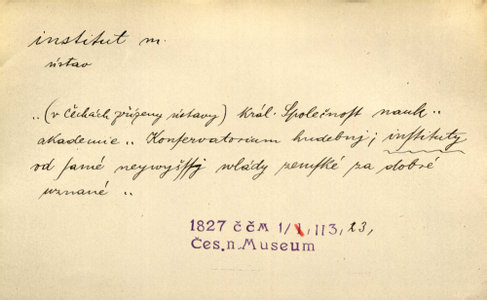 institut m.
ústav
„ (v Čechách zřízeny ústavy) Král. Společnost nauk „
akademie „ Konservatorium hudebnj; instituty
od samé neywyšssj wlády zemské za dobré
uznané „
1827 ČČM 1/1, 113, 23,
Čes.n.Museum